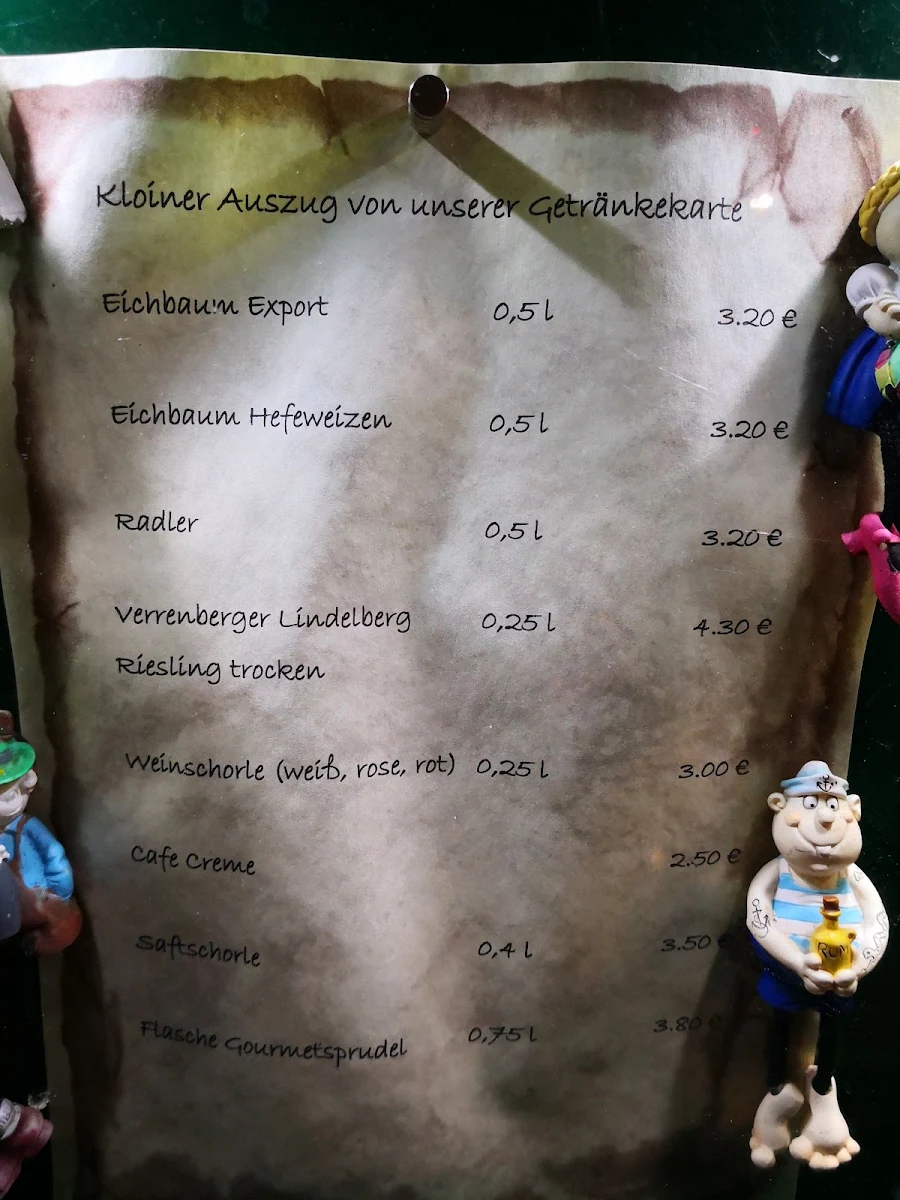 Kloiner Auszug von unserer Getränkekarte
Eichbaum Export 0,5 l 3.20 €
Eichbaum Hefeweizen 0,5 l 3.20 €
Radler 0,5 l 3.20 €
Verrenberger Lindelberg 0,25 l 4.30 €
Riesling trocken
Weinschorle (weiß, rose, rot) 0,25 l 3.00 €
Cafe Creme 2.50 €
Saftschorle 0,4 l 3.50 €
Flasche Gourmetsprudel 0,75 l 3.80 €
RUM